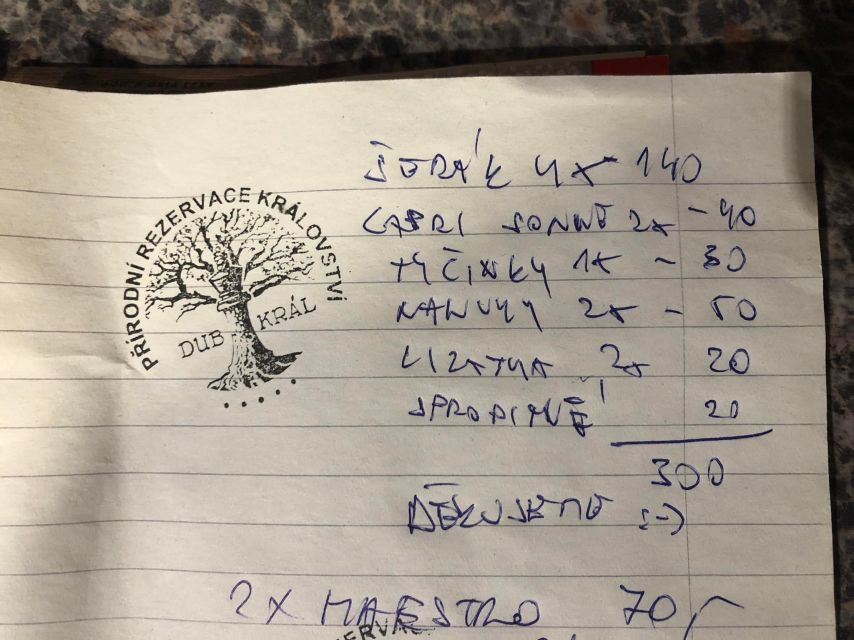 PŘÍRODNÍ REZERVACE KRÁLOVSTVÍ
DUB KRÁL
ŠERÁK 4x 140
CAPRI SONNE 2x - 40
TYČINKY 1x - 30
NANUKY 2x - 50
LIZATKA 2x 20
SPROPITNÉ 20
300
DĚKUJEME :-)
2X MAESTRO 70,-